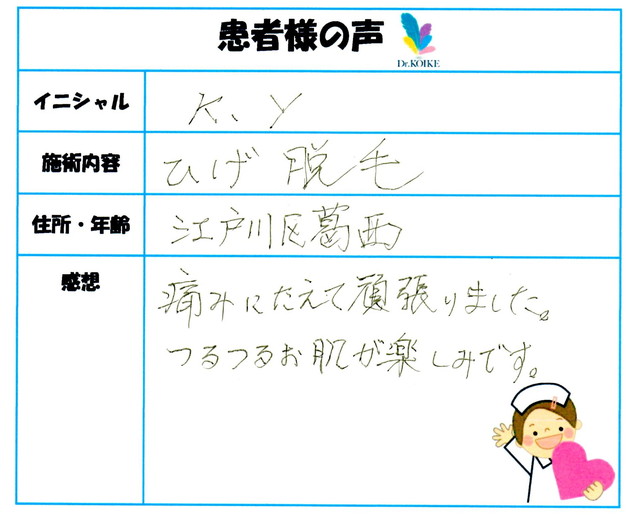 患者様の声
Dr.KOIKE
イニシャル
K、Y
施術内容
ひげ脱毛
住所・年齢
江戸川区葛西
感想
痛みにたえて頑張りました。
つるつるお肌が楽しみです。